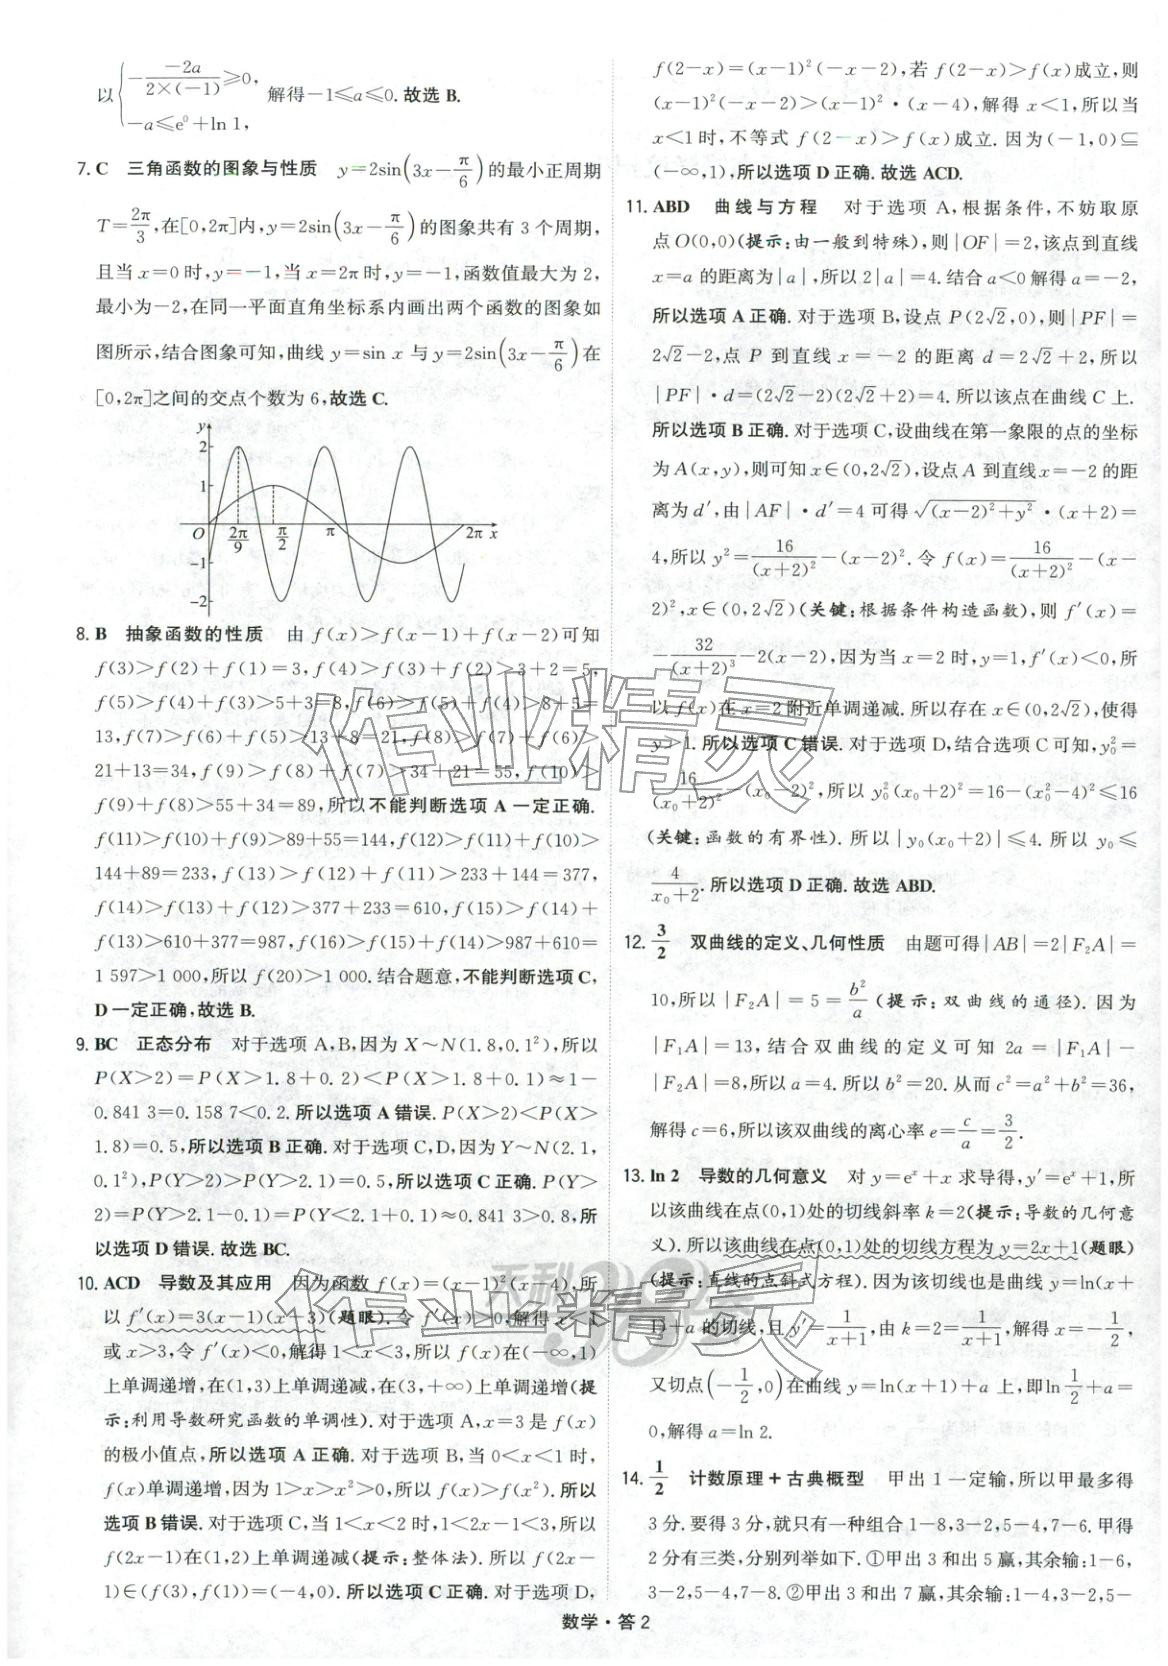 以{-\frac{-2a}{2×(-1)}≥0, -a≤e⁰+ln 1, 解得-1≤a≤0.故选 B.
7. C 三角函数的图象与性质 y=2sin(3x-\frac{π}{6})的最小正周期
T=\frac{2π}{3},在[0,2π]内,y=2sin(3x-\frac{π}{6})的图象共有 3 个周期,
且当 x=0 时,y=-1,当 x=2π 时,y=-1,函数值最大为 2,
最小为-2,在同一平面直角坐标系内画出两个函数的图象如
图所示,结合图象可知,曲线 y=sin x 与 y=2sin(3x-\frac{π}{6})在
[0,2π]之间的交点个数为 6,故选 C.
y
2
1
O \frac{2π}{9} \frac{π}{2} π 2π x
-1
-2
8. B 抽象函数的性质 由 f(x)>f(x-1)+f(x-2)可知
f(3)>f(2)+f(1)=3,f(4)>f(3)+f(2)>3+2=5,
f(5)>f(4)+f(3)>5+3=8,f(6)>f(5)+f(4)>8+5=
13,f(7)>f(6)+f(5)>13+8=21,f(8)>f(7)+f(6)>
21+13=34,f(9)>f(8)+f(7)>34+21=55,f(10)>
f(9)+f(8)>55+34=89,所以不能判断选项 A 一定正确.
f(11)>f(10)+f(9)>89+55=144,f(12)>f(11)+f(10)>
144+89=233,f(13)>f(12)+f(11)>233+144=377,
f(14)>f(13)+f(12)>377+233=610,f(15)>f(14)+
f(13)>610+377=987,f(16)>f(15)+f(14)>987+610=
1 597>1 000,所以 f(20)>1 000.结合题意,不能判断选项 C,
D 一定正确,故选 B.
9. BC 正态分布 对于选项 A,B,因为 X～N(1.8,0.1²),所以
P(X>2)=P(X>1.8+0.2)<P(X>1.8+0.1)≈1-
0.841 3=0.158 7<0.2.所以选项 A 错误.P(X>2)<P(X>
1.8)=0.5,所以选项 B 正确.对于选项 C,D,因为 Y～N(2.1,
0.1²),P(Y>2)>P(Y>2.1)=0.5,所以选项 C 正确.P(Y>
2)=P(Y>2.1-0.1)=P(Y<2.1+0.1)≈0.841 3>0.8,所
以选项 D 错误.故选 BC.
10. ACD 导数及其应用 因为函数 f(x)=(x-1)²(x-4),所
以 f′(x)=3(x-1)(x-3)(题眼).令 f′(x)>0,解得 x<1
或 x>3,令 f′(x)<0,解得 1<x<3,所以 f(x)在(-∞,1)
上单调递增,在(1,3)上单调递减,在(3,+∞)上单调递增(提
示:利用导数研究函数的单调性).对于选项 A,x=3 是 f(x)
的极小值点,所以选项 A 正确.对于选项 B,当 0<x<1 时,
f(x)单调递增,因为 1>x>x²>0,所以 f(x)>f(x²).所以
选项 B 错误.对于选项 C,当 1<x<2 时,1<2x-1<3,所以
f(2x-1)在(1,2)上单调递减(提示:整体法).所以 f(2x-
1)∈(f(3),f(1))=(-4,0).所以选项 C 正确.对于选项 D,
f(2-x)=(x-1)²(-x-2),若 f(2-x)>f(x)成立,则
(x-1)²(-x-2)>(x-1)²·(x-4),解得 x<1,所以当
x<1 时,不等式 f(2-x)>f(x)成立.因为(-1,0)⊆
(-∞,1),所以选项 D 正确.故选 ACD.
11. ABD 曲线与方程 对于选项 A,根据条件,不妨取原
点 O(0,0)(提示:由一般到特殊),则|OF|=2,该点到直线
x=a 的距离为|a|,所以 2|a|=4.结合 a<0 解得 a=-2,
所以选项 A 正确.对于选项 B,设点 P(2√2,0),则|PF|=
2√2-2,点 P 到直线 x=-2 的距离 d=2√2+2,所以
|PF|·d=(2√2-2)(2√2+2)=4.所以该点在曲线 C 上.
所以选项 B 正确.对于选项 C,设曲线在第一象限的点的坐标
为 A(x,y),则可知 x∈(0,2√2),设点 A 到直线 x=-2 的距
离为 d′,由|AF|·d′=4 可得\sqrt{(x-2)²+y²}·(x+2)=
4,所以 y²=\frac{16}{(x+2)²}-(x-2)².令 f(x)=\frac{16}{(x+2)²}-(x-
2)²,x∈(0,2√2)(关键:根据条件构造函数),则 f′(x)=
-\frac{32}{(x+2)³}-2(x-2),因为当 x=2 时,y=1,f′(x)<0,所
以 f(x)在 x=2 附近单调递减.所以存在 x∈(0,2√2),使得
y>1.所以选项 C 错误.对于选项 D,结合选项 C 可知,y₀²=
\frac{16}{(x₀+2)²}-(x₀-2)²,所以 y₀²(x₀+2)²=16-(x₀²-4)²≤16
(关键:函数的有界性).所以|y₀(x₀+2)|≤4.所以 y₀≤
\frac{4}{x₀+2}.所以选项 D 正确.故选 ABD.
12. \frac{3}{2} 双曲线的定义、几何性质 由题可得|AB|=2|F₂A|=
10,所以|F₂A|=5=\frac{b²}{a}(提示:双曲线的通径).因为
|F₁A|=13,结合双曲线的定义可知 2a=|F₁A|-
|F₂A|=8,所以 a=4.所以 b²=20.从而 c²=a²+b²=36,
解得 c=6,所以该双曲线的离心率 e=\frac{c}{a}=\frac{3}{2}.
13. ln 2 导数的几何意义 对 y=eˣ+x 求导得,y′=eˣ+1,所
以该曲线在点(0,1)处的切线斜率 k=2(提示:导数的几何意
义).所以该曲线在点(0,1)处的切线方程为 y=2x+1(题眼)
(提示:直线的点斜式方程).因为该切线也是曲线 y=ln(x+
1)+a 的切线,且 y′=\frac{1}{x+1},由 k=2=\frac{1}{x+1},解得 x=-\frac{1}{2},
又切点(-\frac{1}{2},0)在曲线 y=ln(x+1)+a 上,即 ln\frac{1}{2}+a=
0,解得 a=ln 2.
14. \frac{1}{2} 计数原理+古典概型 甲出 1 一定输,所以甲最多得
3 分.要得 3 分,就只有一种组合 1-8,3-2,5-4,7-6.甲得
2 分有三类,分别列举如下.①甲出 3 和出 5 赢,其余输:1-6,
3-2,5-4,7-8.②甲出 3 和出 7 赢,其余输:1-4,3-2,5-
数学·答 2
作业精灵
作业精灵